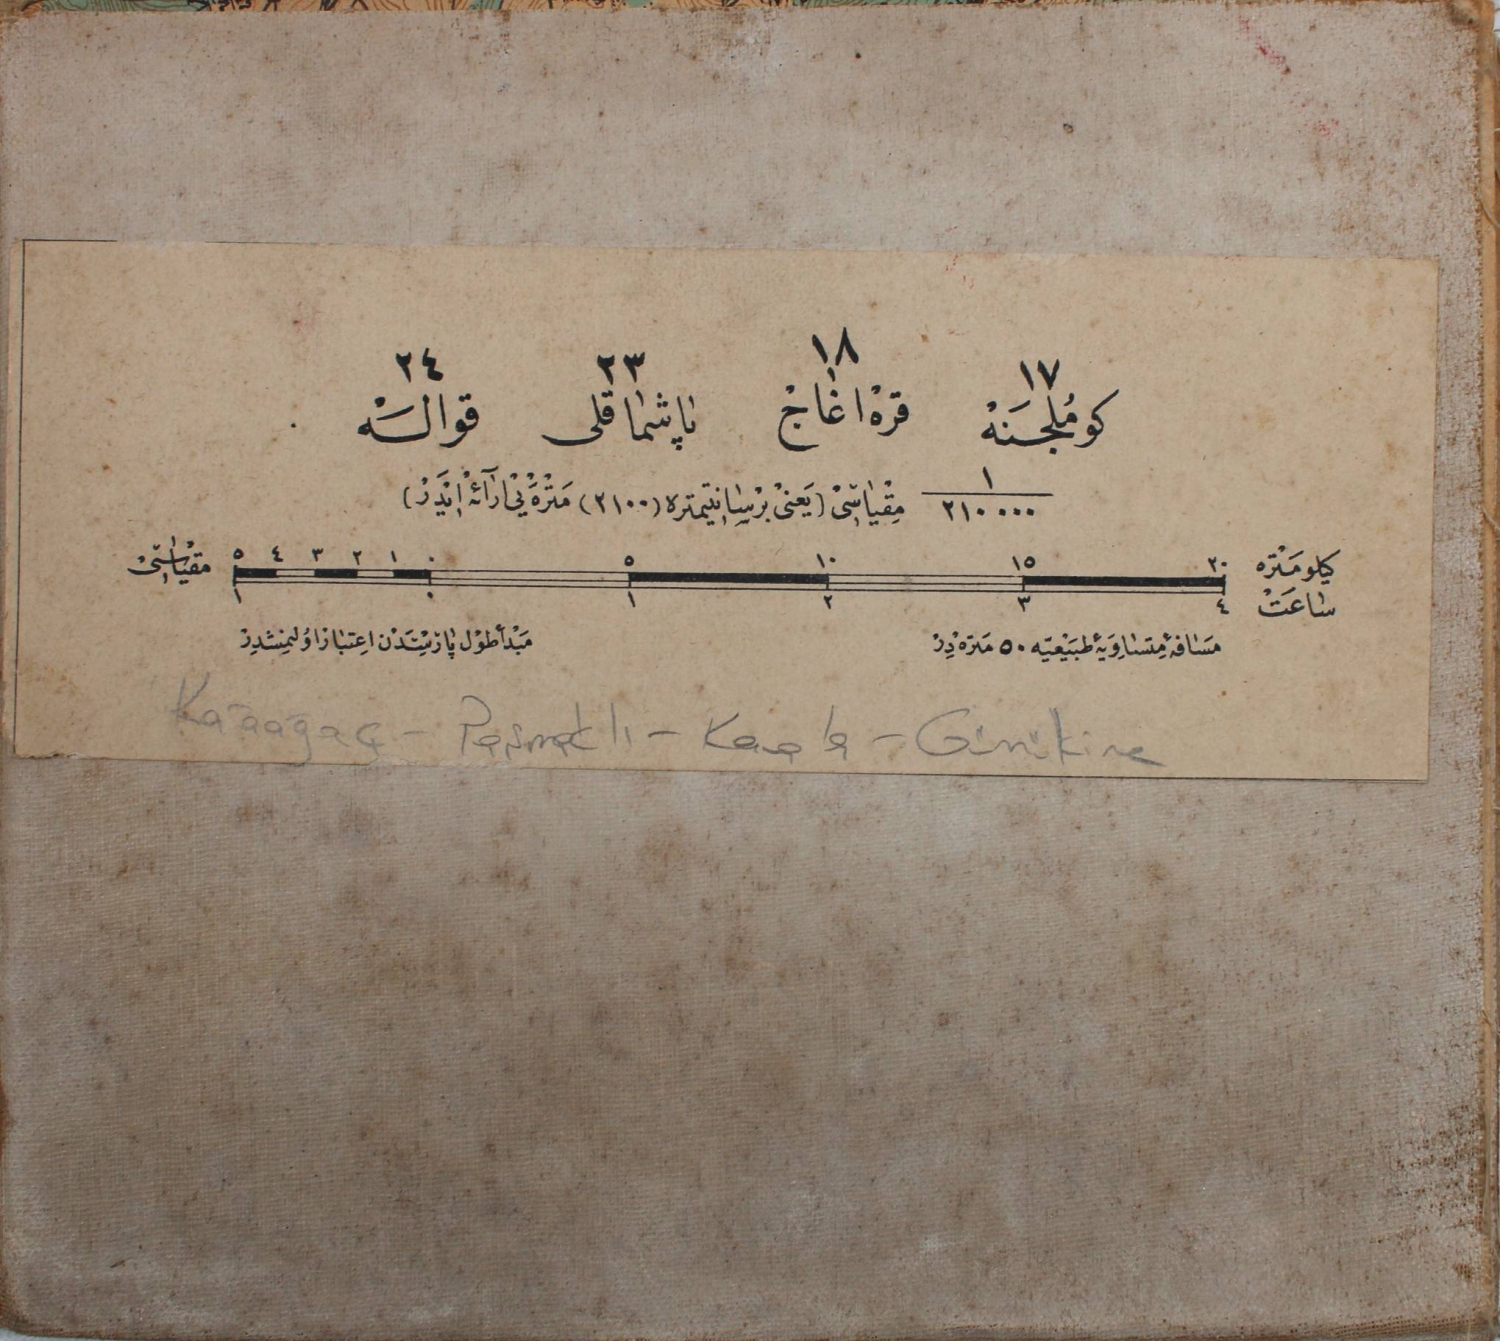 ١٧ ١٨ ٢٣ ٢٤
كومُلجَنَهْ قرَهْ اغَاجْ پاشماقلى قوالَسَه
١
٢١٠٠٠٠ مِقْيَاسِى (يَعنىْ برْسَانتيمَتره (٢١٠٠) مَترَهْ يى ارَائَهْ ايدَرْ)
كيلومَترَه ٢٠ ١٥ ١٠ ٥ ٠ ١ ٢ ٣ ٤ ٥ مقيَاسِى
سَاعَتْ ٤ ٣ ٢ ١ ٠ ١
مَسَافهٔ مِتسَاوِيَهٔ طبَيْعيَه ٥٠ مَترَهْ دِرْ
مَبْدأ طوْل پَارِيسْدَنْ اعتبَارْ اوُلنمِشدِرْ
Karaağaç - Paşmaklı - Kavala - Gümülcine